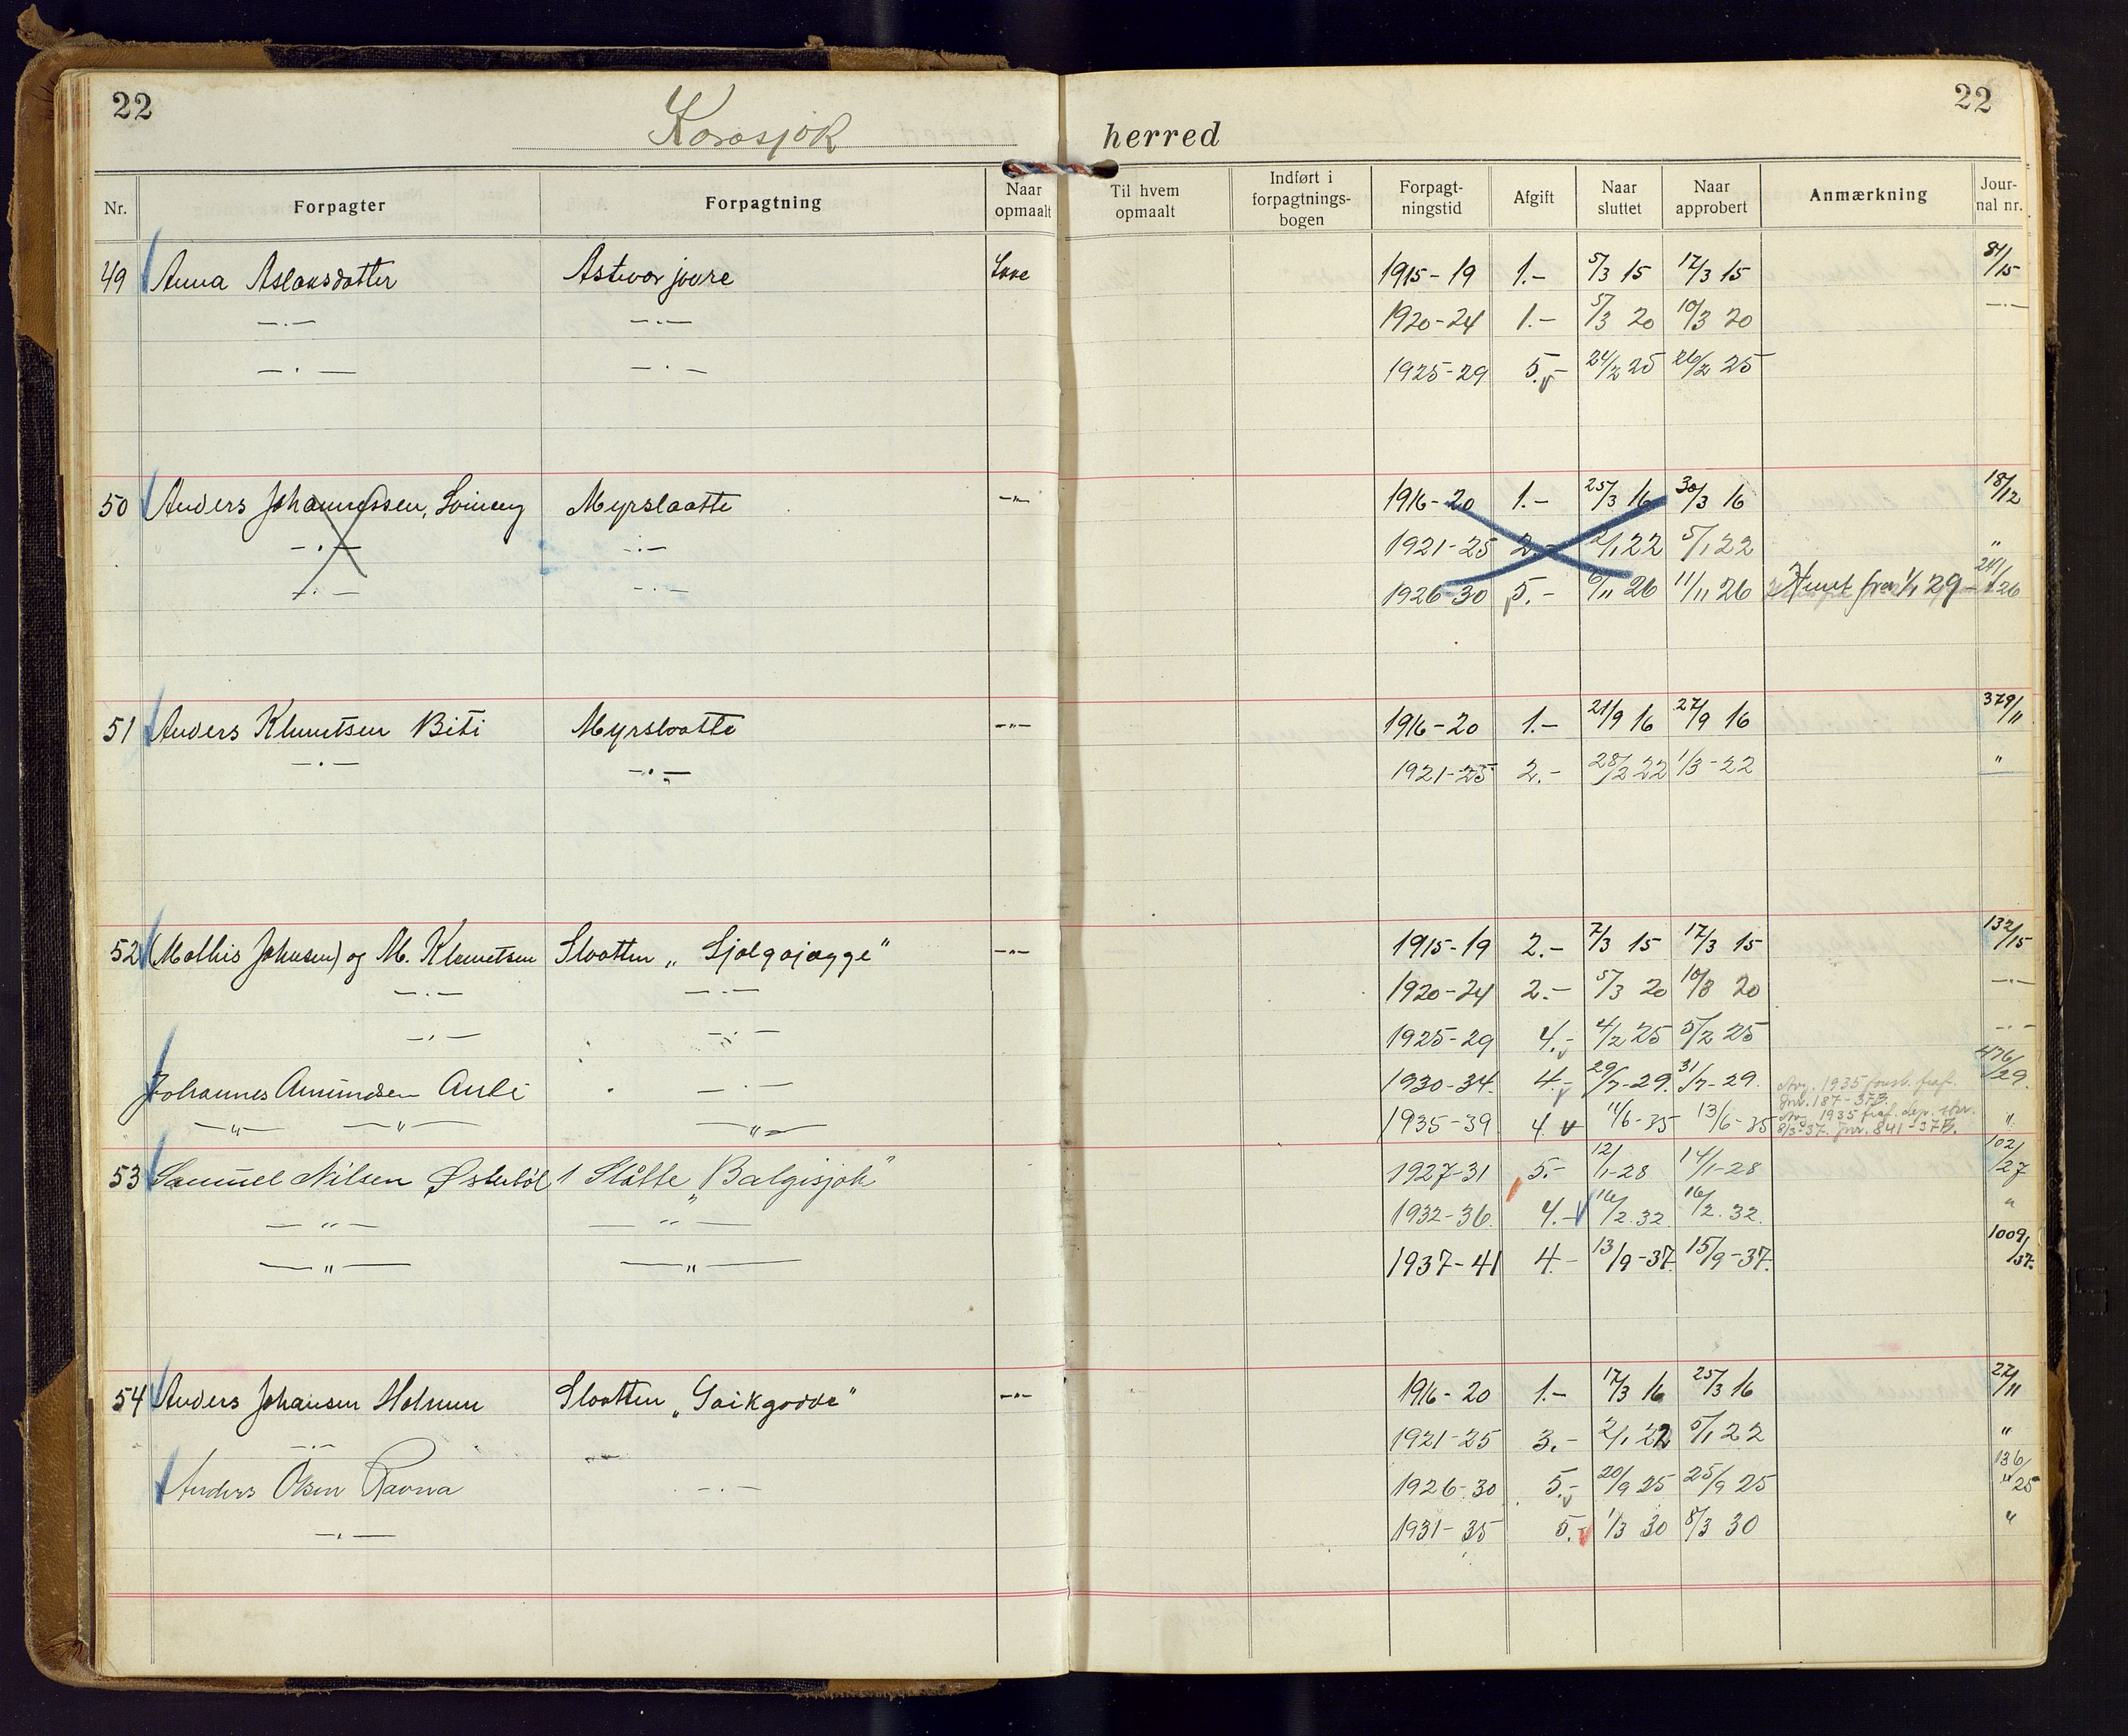 22
22
Karasjok herred
Nr. Forpagter Forpagtning Naar opmaalt Til hvem opmaalt Indført i forpagtnings-bogen Forpagt-ningstid Afgift Naar sluttet Naar approbert Anmærkning Jour-nal nr.
49 Anna Aslaksdatter 1915-19 1.- 5/3 15 17/3 15 81/15
—.— —.— 1920-24 1.- 5/3 20 10/3 20 —.—
—.— —.— 1925-29 5.- 24/2 25 26/2 25
50 Anders Johannessen, Myrslaatte —"— 1916-20 1.- 25/3 16 30/3 16 18/12
—.— —.— 1921-25 2.- 2/1 22 5/1 22 "
—.— —.— 1926-30 5.- 6/11 26 11/11 26 fra 1/1 29
51 Anders Klemetsen Biti Myrslaatte —"— 1916-20 1.- 21/9 16 27/9 16 379/11
—.— —.— 1921-25 2.- 28/2 22 1/3-22 "
52 (Mathis Johnsen) og M. Klemetsen Slaatten „ Sjolgajægge" —"— 1915-19 2.- 7/3 15 17/3 15 132/15
—.— —.— 1920-24 2.- 5/3 20 10/3 20 —.—
—.— —.— 1925-29 4.- 4/2 25 5/2 25 —.—
Johannes Amundsen Anti —.— 1930-34. 4.- 29/7-29. 31/7-29. 476/29.
—"— —"— —"— 1935-39 4. 11/6-35 13/6-35 "
Avg. 1935 fraf.
Jnr. 187-37B.
Avg. 1935 fraf. dep. skr.
8/3-37. Jnr. 841-37B.
53 Samuel Nilsen Østerbøl 1 Slåtte „Balgisjok" 1927-31 5.- 12/1-28 14/1-28 102/27
—"— —"— 1932-36. 4.- 16/2.32. 16/2.32. "
—"— —"— 1937-41 4.- 13/9-37. 15/9-37. 1009/37.
54 Anders Johansen Holmen Slaatten „Gaikgodde" —"— 1916-20 1.- 17/3 16 25/3 16 22/11
—.— 1921-25 3.- 2/1 22 5/1 22 "
Anders Olsen Ravna —.— 1926-30 5.- 20/9 25 25/9 25 136/25
—.— 1931-35 5.- 1/3 30 8/3 30 "